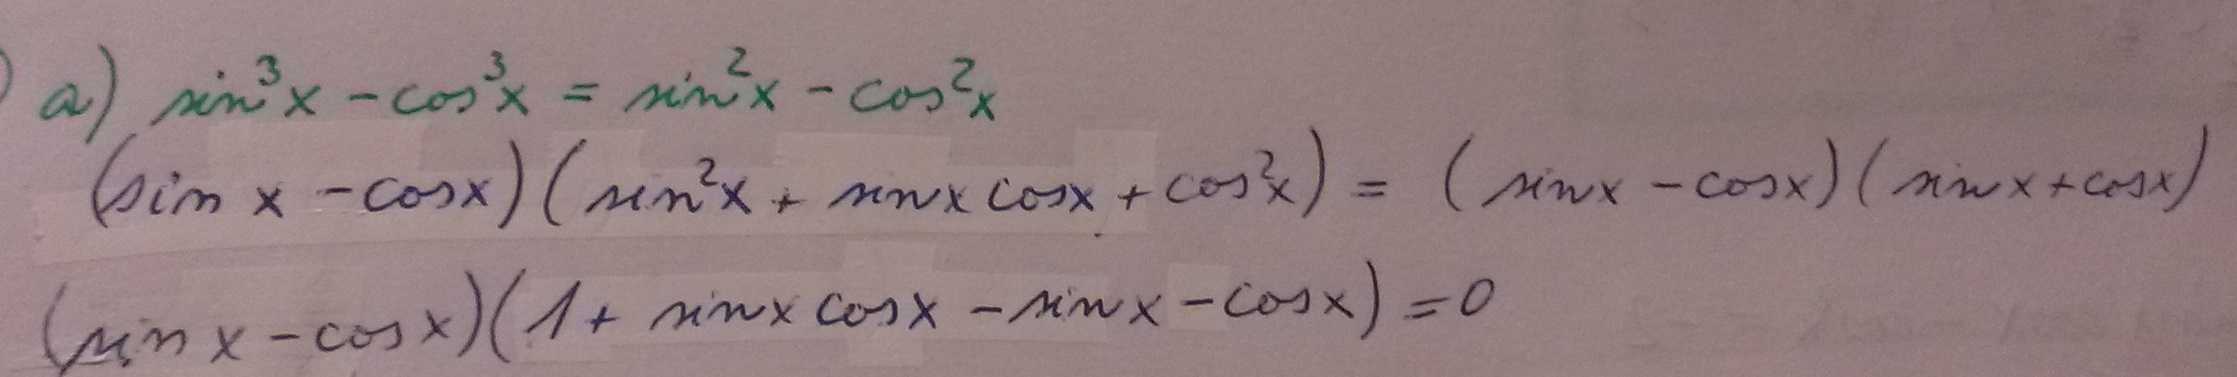 ) a) sin³x - cos³x = sin²x - cos²x
(sin x - cosx)(sin²x + sinx cosx + cos²x) = (sinx - cosx)(sinx + cosx)
(sin x - cosx)(1 + sinx cosx - sinx - cosx) = 0